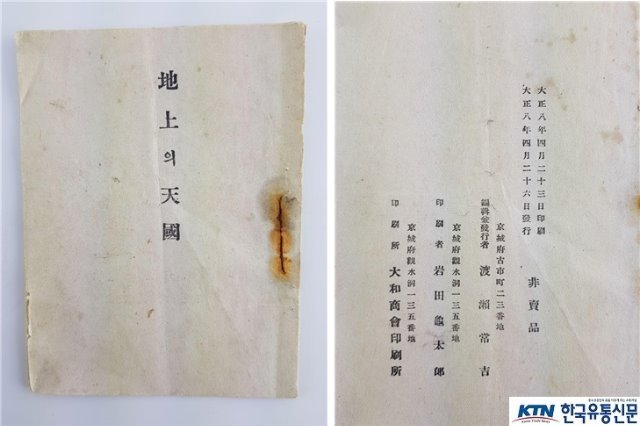 地上의天國
大正八年四月二十三日印刷
大正八年四月二十六日發行
非賣品
京城府古市町二三番地
編輯兼發行者 渡瀨常吉
京城府觀水洞一三五番地
印刷者 岩田龜太郎
京城府觀水洞一三五番地
印刷所 大和商會印刷所
KTN 한국유통신문
Korea Trade News